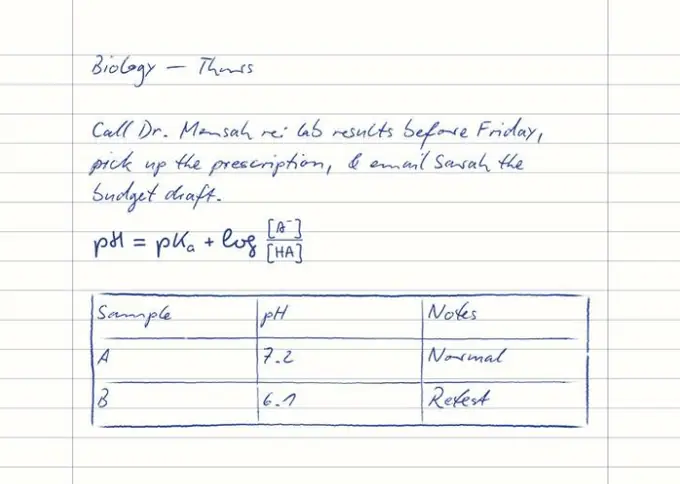 Biology — Thurs
Call Dr. Mensah re: lab results before Friday,
pick up the prescription, & email Sarah the
budget draft.
pH = pKa + log [A⁻]/[HA]
Sample pH Notes
A 7.2 Normal
B 6.1 Retest